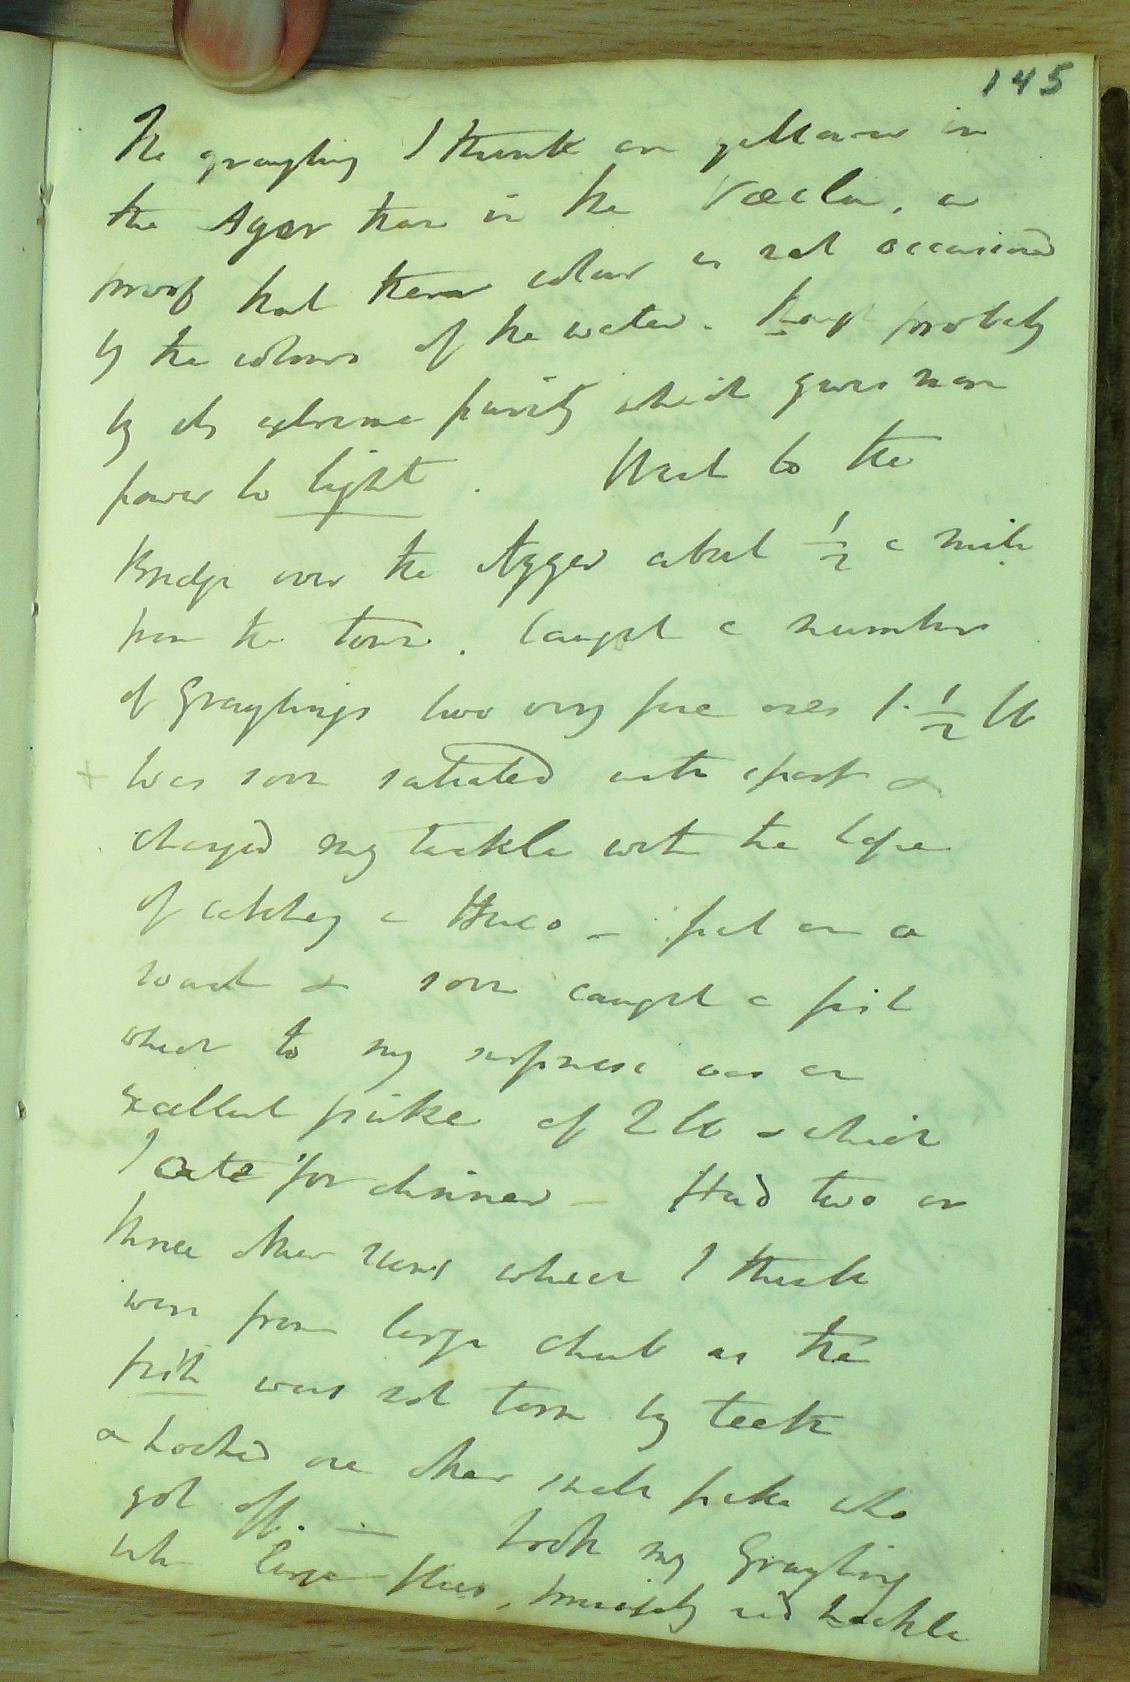 145
The grayling I think are yellower in
the Ager than in the Vöcla, a
proof that their colour is not occasioned
by the colours of the water. though probably
by its extreme purity which gives more
power to light. Went to the
Bridge over the Agger about 1/2 a mile
from the town. Caught a number
of Graylings two very fine ones 1.1/2 lb
+ Was soon satiated with sport &
changed my tackle with the hope
of catching a Huco - put on a
roach & soon caught a fish
which to my surprise was an
excellent pike of 2 lb which
I ate for dinner - Had two or
three other runs which I think
were from large chub as the
fish was not torn by teeth
& hooked one other small pike who
got off. — took my Grayling
with large flies, principally red hackle